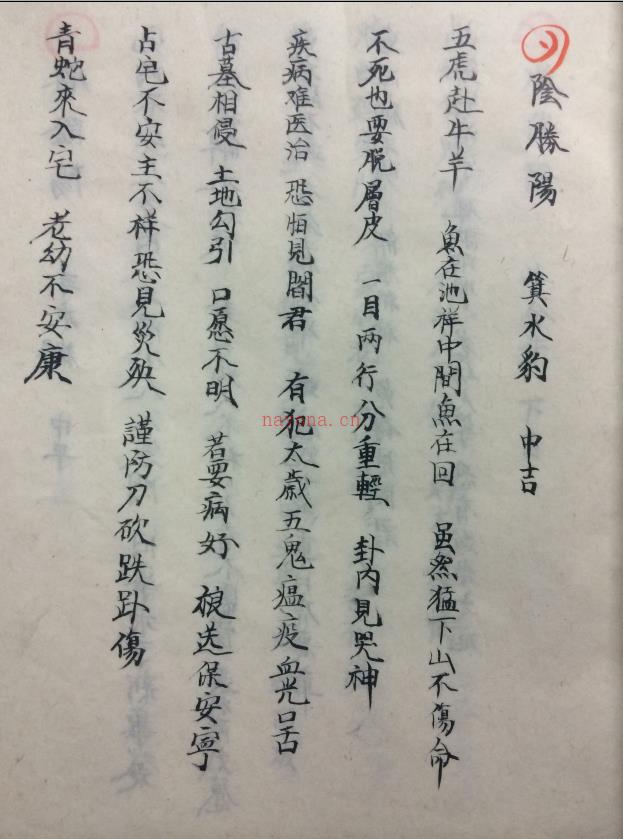 陰勝陽 箕水豹 中吉
五虎赴牛羊 魚在池祥中間魚在回 虽然猛下山不傷命
不死也要脱層皮 一目两行分重輕 卦内見哭神
疾病难医治 恐怕見閻君 有犯太歲五鬼瘟疫血光口舌
古墓相侵 土地勾引 口愿不明 若要病好 禳送保安寧
占宅不安主不祥恐見災殃 謹防刀砍跌趴傷
青蛇來入宅 老幼不安康
nayona.cn